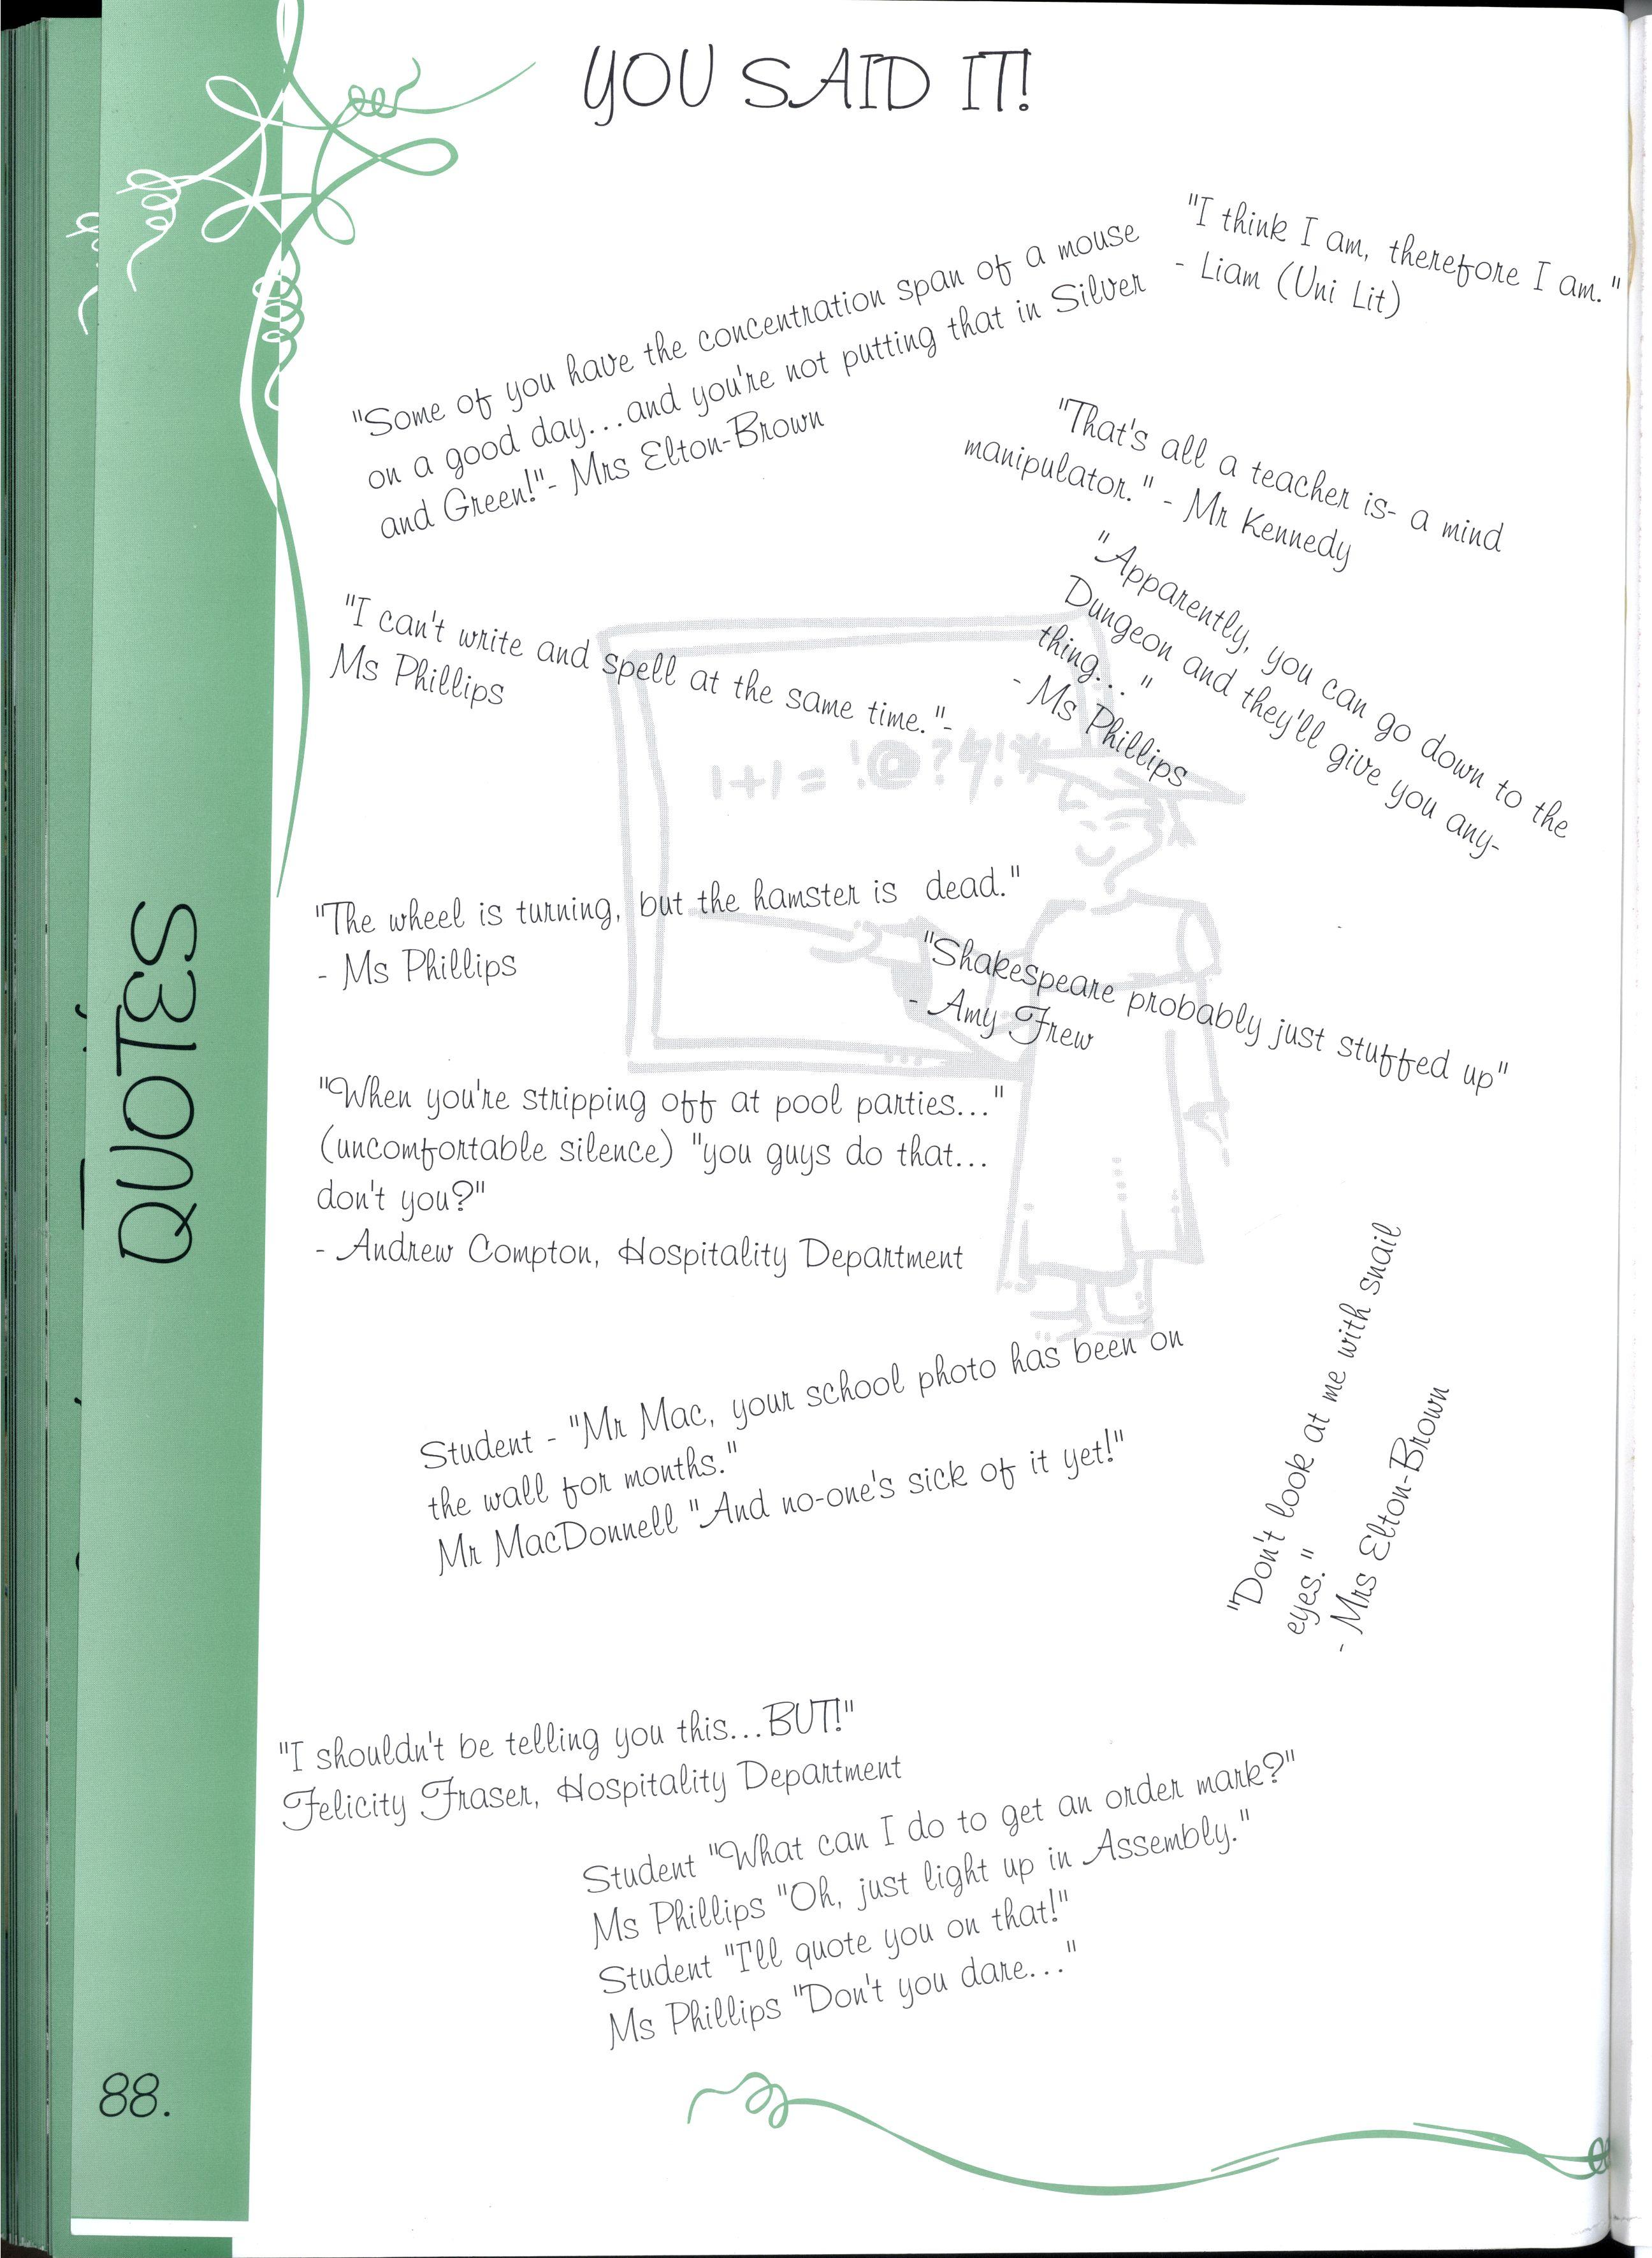 YOU SAID IT!
"I think I am, therefore I am."
- Liam (Uni Lit)
"Some of you have the concentration span of a mouse
on a good day...and you're not putting that in Silver
and Green!"- Mrs Elton-Brown
"That's all a teacher is- a mind
manipulator." - Mr Kennedy
"Apparently, you can go down to the
Dungeon and they'll give you any-
thing..."
- Ms Phillips
"I can't write and spell at the same time."-
Ms Phillips
1+1 = !@?4!*
"The wheel is turning, but the hamster is dead."
- Ms Phillips
"Shakespeare probably just stuffed up"
- Amy Frew
"When you're stripping off at pool parties..."
(uncomfortable silence) "you guys do that...
don't you?"
- Andrew Compton, Hospitality Department
Student - "Mr Mac, your school photo has been on
the wall for months."
Mr MacDonnell "And no-one's sick of it yet!"
"Don't look at me with snail
eyes."
- Mrs Elton-Brown
"I shouldn't be telling you this...BUT!"
Felicity Fraser, Hospitality Department
Student "What can I do to get an order mark?"
Ms Phillips "Oh, just light up in Assembly."
Student "I'll quote you on that!"
Ms Phillips "Don't you dare..."
QUOTES
88.